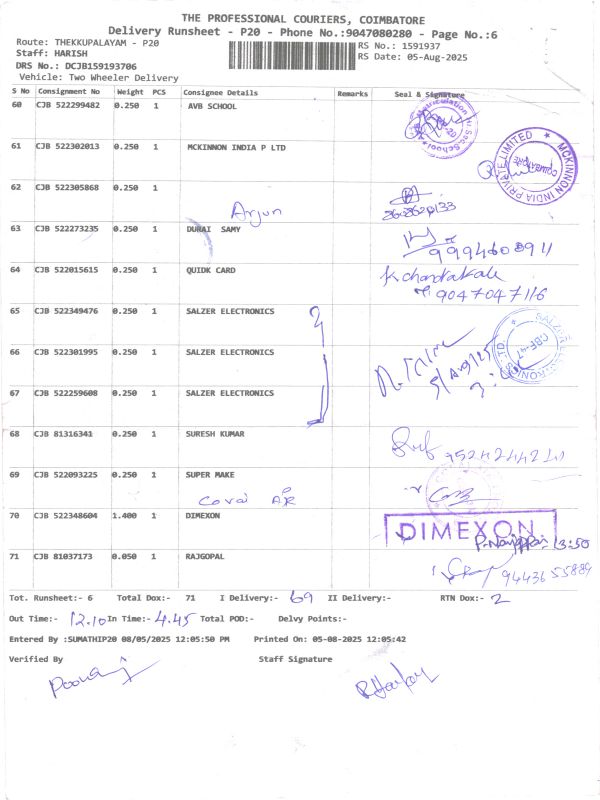 THE PROFESSIONAL COURIERS, COIMBATORE
Delivery Runsheet - P20 - Phone No.:9047080280 - Page No.:6
Route: THEKKUPALAYAM - P20
Staff: HARISH
DRS No.: DCJB159193706
Vehicle: Two Wheeler Delivery
RS No.: 1591937
RS Date: 05-Aug-2025
S No Consignment No Weight PCS Consignee Details Remarks Seal & Signature
60 CJB 522299482 0.250 1 AVB SCHOOL
61 CJB 522302013 0.250 1 MCKINNON INDIA P LTD
MCKINNON INDIA PRIVATE LIMITED COIMBATORE
62 CJB 522305868 0.250 1
Arjun
63 CJB 522273235 0.250 1 DURAI SAMY
64 CJB 522015615 0.250 1 QUIDK CARD
K chandrakala
9047047116
65 CJB 522349476 0.250 1 SALZER ELECTRONICS
66 CJB 522301995 0.250 1 SALZER ELECTRONICS
67 CJB 522259608 0.250 1 SALZER ELECTRONICS
68 CJB 81316341 0.250 1 SURESH KUMAR
69 CJB 522093225 0.250 1 SUPER MAKE
Covai
70 CJB 522348604 1.400 1 DIMEXON
DIMEXON
13:50
71 CJB 81037173 0.050 1 RAJGOPAL
9443655889
Tot. Runsheet:- 6 Total Dox:- 71 I Delivery:- 69 II Delivery:- RTN Dox:- 2
Out Time:- 12.10 In Time:- 4.45 Total POD:- Delvy Points:-
Entered By :SUMATHIP20 08/05/2025 12:05:50 PM Printed On: 05-08-2025 12:05:42
Verified By Staff Signature